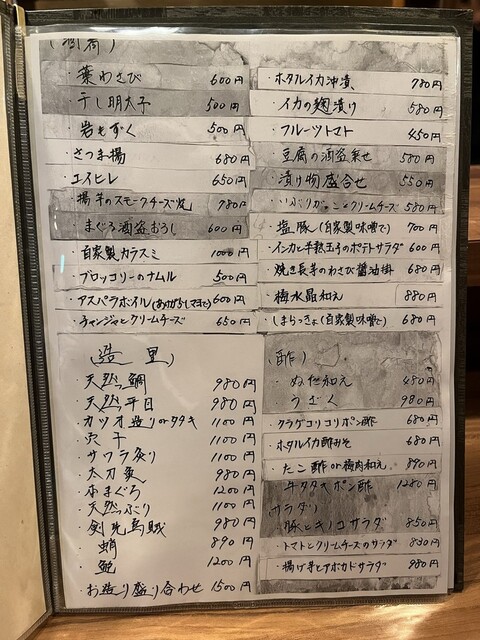 ・葉わさび 600円
・干し明太子 500円
・岩もずく 500円
さつま揚 680円
・エイヒレ 650円
・揚芋のスモークチーズ 780円
・まぐろ酒盗おろし 600円
・自家製カラスミ 1000円
・ブロッコリーのナムル 500円
・アスパラボイル(あげがらしマヨで) 600円
・チャンジャとクリームチーズ 650円
・ホタルイカ沖漬 780円
・イカの麹漬け 580円
・フルーツトマト 450円
・豆腐の酒盗乗せ 580円
・漬け物盛合せ 550円
・いぶりがっことクリームチーズ 580円
・塩豚(自家製味噌で) 700円
・インカと半熟玉子のポテトサラダ 600円
・焼き長芋のわさび醤油掛 680円
・梅水晶和え 880円
・しまらっきょ(自家製味噌で) 680円
(造里)
・天然鯛 980円
・天然平目 980円
・カツオ造りorタタキ 1100円
・穴子 1100円
・サワラ炙り 1100円
・太刀魚 980円
・本まぐろ 1200円
・天然ぶり 1100円
・剣先烏賊 980円
・蛸 890円
・鮑 1200円
・お造り盛り合わせ 1500円
(酢)
・ぬた和え 480円
・うざく 980円
・クラゲコリコリポン酢 680円
・ホタルイカ酢みそ 680円
・たこ酢or梅肉和え 890円
・牛タタキポン酢 1280円
(サラダ)
・豚とキノコサラダ 850円
・トマトとクリームチーズのサラダ 830円
・揚げ芋とアボカドサラダ 980円